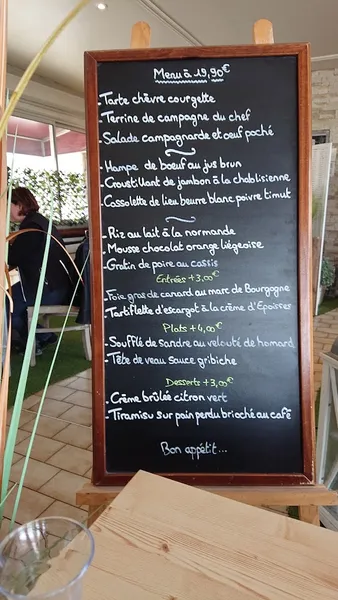 Menu à 19,90€
- Tarte chèvre courgette
- Terrine de campagne du chef
- Salade campagnarde et oeuf poché
- Hampe de boeuf au jus brun
- Croustillant de jambon à la chablisienne
- Cassolette de lieu beurre blanc poivre timut
- Riz au lait à la normande
- Mousse chocolat orange liégeoise
- Gratin de poire au cassis
Entrées +3,00€
- Foie gras de canard au marc de Bourgogne
- Tartiflette d'escargot à la crème d'Epoisses
Plats +4,00€
- Soufflé de sandre au velouté de homard
- Tête de veau sauce gribiche
Desserts +3,00€
- Crème brûlée citron vert
- Tiramisu sur pain perdu brioché au café
Bon appétit...